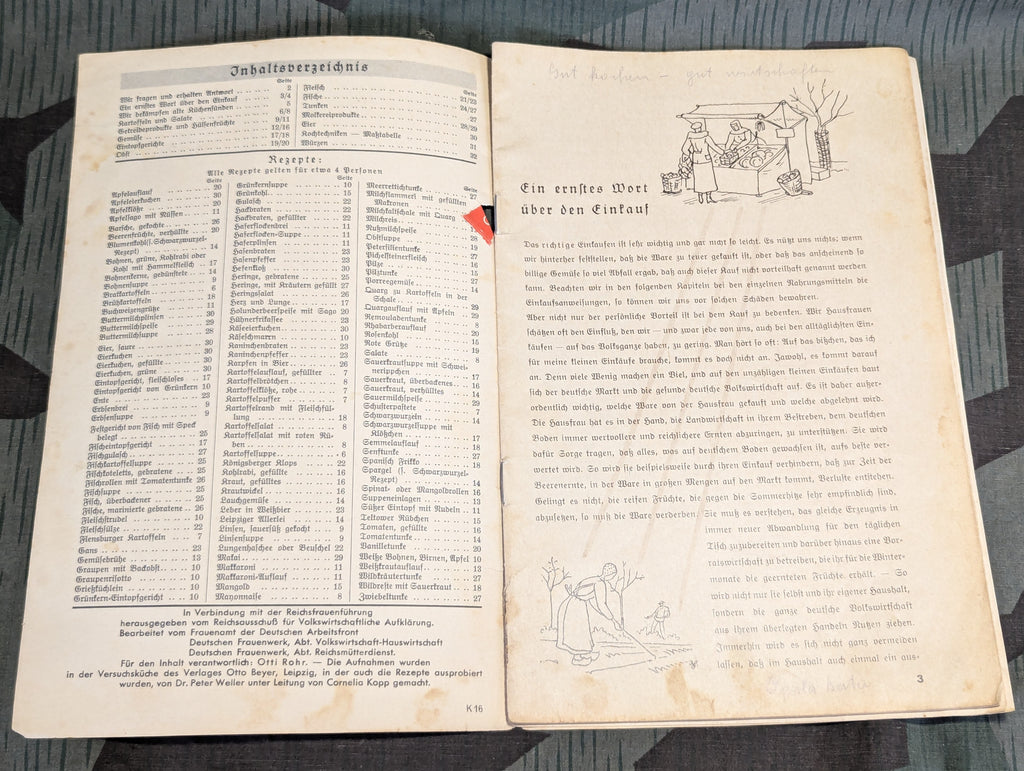 Inhaltsverzeichnis
Seite
Wir fragen und erhalten Antwort 2
Ein ernstes Wort über den Einkauf 3/4
Wir bekämpfen alte Küchensünden 5
Kartoffeln und Salate 6/8
Getreideprodukte und Hülsenfrüchte 9/11
Gemüse 12/16
Eintopfgerichte 17/18
Obst 19/20
Seite
Fleisch 21/23
Fische 24/27
Tunken 27
Molkereiprodukte 28/29
Eier 30
Kochtechniken — Maßtabelle 31
Würzen 32
Rezepte:
Alle Rezepte gelten für etwa 4 Personen
Seite
Apfelauflauf 20
Apfeleierkuchen 30
Apfelklöße 20
Apfelsago mit Nüssen 11
Barsche, gekochte 26
Beerenfrüchte, verhüllte 20
Blumenkohl (s. Schwarzwurzel-
Rezept) 14
Bohnen, grüne, Kohlrabi oder
Kohl mit Hammelfleisch 17
Bohnenkerne, gedünstete 14
Bohnensuppe 9
Bratkartoffeln 6
Brühkartoffeln 18
Buchweizengrütze 11
Buttermilchplinsen 30
Buttermilchspeise 29
Buttermilchsuppe 28
Eier, saure 30
Eierkuchen 30
Eierkuchen, gefüllte 30
Eierkuchen, grüne 30
Eintopfgericht, fleischloses 17
Eintopfgericht von Grünkern 10
Ente 23
Erbsenbrei 9
Erbsensuppe 9
Festgericht von Fisch mit Speck
belegt 25
Fischeintopfgericht 17
Fischgulasch 27
Fischkartoffelsuppe 25
Fischkoteletts, gebratene 25
Fischrollen mit Tomatentunke 26
Fischsuppe 25
Fisch, überbackener 25
Fische, marinierte gebratene 26
Fleischstrudel 10
Fleischsülze 22
Flensburger Kartoffeln 7
Gans 23
Gemüsebrühe 13
Graupen mit Backobst 10
Graupenrisotto 10
Grießküchlein 10
Grünkern-Eintopfgericht 10
Seite
Grünkernsuppe 10
Grünkohl 15
Gulasch 22
Hackbraten 22
Hackbraten, gefüllter 22
Haferflockenbrei 11
Haferflocken-Suppe 11
Haferplinsen 11
Hasenbraten 23
Hasenpfeffer 23
Hefenkloß 30
Heringe, gebratene 25
Heringe, mit Kräutern gefüllt 27
Heringssalat 26
Herz und Lunge 17
Holunderbeerspeise mit Sago 20
Hühnerfrikassee 23
Käseeierkuchen 30
Käseschmarrn 10
Kaninchenbraten 23
Kaninchenpfeffer 23
Karpfen in Bier 26
Kartoffelauflauf, gefüllter 7
Kartoffelbrötchen 8
Kartoffelklöße, rohe 7
Kartoffelpuffer 7
Kartoffelrand mit Fleischfül-
lung 18
Kartoffelsalat 8
Kartoffelsalat mit roten Rü-
ben 8
Kartoffelsuppe 6
Königsberger Klops 22
Kohlrabi, gefüllte 16
Kraut, gefülltes 16
Krautwickel 16
Lauchgemüse 14
Leber in Weißbier 23
Leipziger Allerlei 14
Linsen, sauersüß gekocht 9
Linsensuppe 9
Lungenhaschee oder Beuschel 22
Makai 29
Makkaroni 11
Makkaroni-Auflauf 11
Mangold 15
Mayonnaise 8
Seite
Meerrettichtunke 27
Milchflammeri mit gefüllten
Makronen
Milchkaltschale mit Quarg
Milchreis
Nußmilchspeise
Obstsuppe 28
Petersilientunke 19
Pichelsteinerfleisch 27
Pilze 17
Pilztunke 15
Porreegemüse 27
Quarg zu Kartoffeln in der 14
Schale
Quargauflauf mit Äpfeln 29
Remouladentunke 29
Rhabarberauflauf 8
Rosenkohl 20
Rote Grütze 15
Salate 19
Sauerkrautsuppe mit Schwei- 8
nerippchen 17
Sauerkraut, überbackenes 16
Sauerkraut, verhülltes 14
Sauermilchspeise 29
Schusterpastete 7
Schwarzwurzeln 14
Schwarzwurzelsuppe mit
Klößchen 17
Semmelauflauf 18
Senftunke 27
Spanisch Frikko 18
Spargel (s. Schwarzwurzel-
Rezept) 14
Spinat- oder Mangoldrollen 16
Suppeneinlagen 13
Süßer Eintopf mit Nudeln 11
Teltower Rübchen 15
Tomaten, gefüllte 16
Tomatentunke 14
Vanilletunke 20
Weiße Bohnen, Birnen, Äpfel 10
Weißkrautauflauf 13
Wildkräutertunke 27
Wildreste mit Sauerkraut 18
Zwiebeltunke 27
In Verbindung mit der Reichsfrauenführung
herausgegeben vom Reichsausschuß für Volkswirtschaftliche Aufklärung.
Bearbeitet vom Frauenamt der Deutschen Arbeitsfront
Deutschen Frauenwerk, Abt. Volkswirtschaft-Hauswirtschaft
Deutschen Frauenwerk, Abt. Reichsmütterdienst.
Für den Inhalt verantwortlich: Otti Rohr. — Die Aufnahmen wurden
in der Versuchsküche des Verlages Otto Beyer, Leipzig, in der auch die Rezepte ausprobiert
wurden, von Dr. Peter Weller unter Leitung von Cornelia Kopp gemacht.
K 16
Gut kochen – gut wirtschaften
Ein ernstes Wort
über den Einkauf
Das richtige Einkaufen ist sehr wichtig und gar nicht so leicht. Es nützt uns nichts, wenn
wir hinterher feststellen, daß die Ware zu teuer gekauft ist, oder daß das anscheinend so
billige Gemüse so viel Abfall ergab, daß auch dieser Kauf nicht vorteilhaft genannt werden
kann. Beachten wir in den folgenden Kapiteln bei den einzelnen Nahrungsmitteln die
Einkaufsanweisungen, so können wir uns vor solchen Schäden bewahren.
Aber nicht nur der persönliche Vorteil ist bei dem Kauf zu bedenken. Wir Hausfrauen
schätzen oft den Einfluß, den wir — und zwar jede von uns, auch bei den alltäglichsten Ein-
käufen — auf das Volksganze haben, zu gering. Man hört so oft: Auf das bißchen, das ich
für meine kleinen Einkäufe brauche, kommt es doch nicht an. Jawohl, es kommt darauf
an. Denn viele Wenig machen ein Viel, und auf den unzähligen kleinen Einkäufen baut
sich der deutsche Markt und die gesunde deutsche Volkswirtschaft auf. Es ist daher außer-
ordentlich wichtig, welche Ware von der Hausfrau gekauft und welche abgelehnt wird.
Die Hausfrau hat es in der Hand, die Landwirtschaft in ihrem Bestreben, dem deutschen
Boden immer wertvollere und reichlichere Ernten abzuringen, zu unterstützen. Sie wird
dafür Sorge tragen, daß alles, was auf deutschem Boden gewachsen ist, aufs beste ver-
wertet wird. So wird sie beispielsweise durch ihren Einkauf verhindern, daß zur Zeit der
Beerenernte, in der Ware in großen Mengen auf den Markt kommt, Verluste entstehen.
Gelingt es nicht, die reifen Früchte, die gegen die Sommerhitze sehr empfindlich sind,
abzusetzen, so muß die Ware verderben. Sie muß es verstehen, das gleiche Erzeugnis in
immer neuer Abwandlung für den täglichen
Tisch zuzubereiten und darüber hinaus eine Vor-
ratswirtschaft zu betreiben, die ihr für die Winter-
monate die geernteten Früchte erhält. — So
wird nicht nur sie selbst und ihr eigener Haushalt,
sondern die ganze deutsche Volkswirtschaft
aus ihrem überlegten Handeln Nutzen ziehen.
Immerhin wird es sich nicht ganz vermeiden
lassen, daß im Haushalt auch einmal ein aus-
3